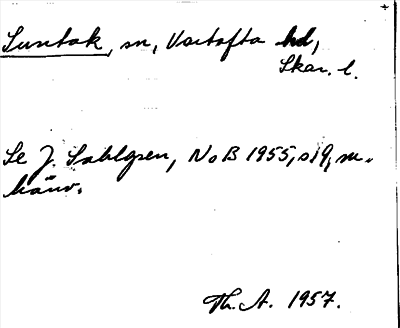 Suntak, sn, Vartofta hd,
Skar. l.
Se J. Sahlgren, NoB 1955, s 9, m.
hänv.
Th. A. 1957.